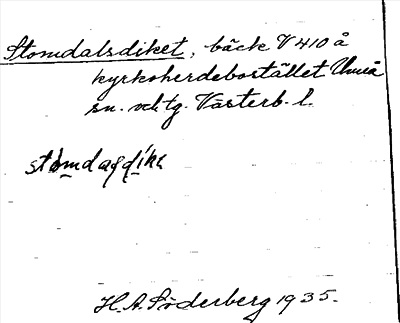 Stomdalsdiket, bäck V 410 å
kyrkoherdebostället Umeå
sn. o. tg. Västerb. l.
stomdagdike
H. A. Söderberg 1935.